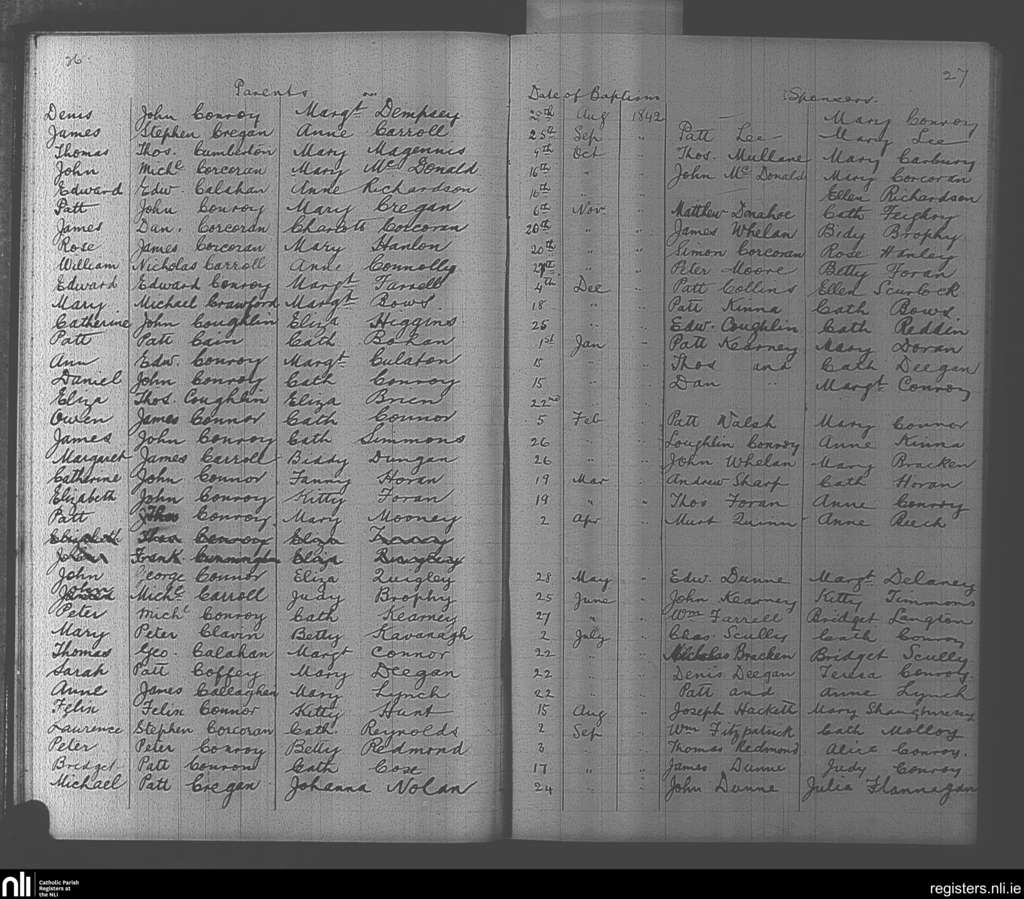 26. 27
Parents Date of Baptism Sponsors.
Denis John Conroy Margt Dempsey 28th Aug 1842 — Mary Conroy
James Stephen Cregan Anne Carroll 25th Sep " Patt Lee Mary Lee
Thomas Thos. Cumberton Mary Magennis 9th Oct " Thos. Mullane Mary Carbury
John Michl Corcoran Mary Mc Donald 16th " " John Mc Donald Mary Corcoran
Edward Edw. Calahan Anne Richardson 16th " " Ellen Richardson
Patt John Conroy Mary Cregan 6th Nov. " Matthew Donahoe Cath Feighry
James Dan. Corcoran Charlotte Corcoran 20th " " James Whelan Bidy Brophy
Rose James Corcoran Mary Hanlon 20th " " Simon Corcoran Rose Hanley
William Nicholas Carroll Anne Connolly 27th " " Peter Moore Betty Foran
Edward Edward Conroy Margt Farrell 4th Dec " Patt Collins Ellen Scurlock
Mary Michael Crawford Margt Bows. 18 " " Patt Kinna Cath Bows.
Catherine John Coughlin Eliza Higgins 25 " " Edw. Coughlin Cath Reddin
Patt Patt Cain Cath Bohan 1st Jan " Patt Kearney Mary Doran
Ann Edw. Conroy Margt Culaton 15 " " Thos and Cath Deegan
Daniel John Conroy Cath Conroy 15 " " Dan " Margt Conroy
Eliza Thos. Coughlin Eliza Brien 22nd
Owen James Connor Cath Connor 5 Feb " Patt Walsh Mary Connor
James John Conroy Cath Simmons 26 " Loughlin Conroy Anne Kinna
Margaret James Carroll Biddy Dungan 26 " John Whelan Mary Bracken
Catherine John Connor Fanny Horan 19 Mar " Andrew Sharp Cath Horan
Elizabeth John Conroy Kitty Foran 19 " " Thos Foran Anne Conroy
Patt Thos Conroy Mary Mooney 2 Apr " Murt Quinn Anne Reech
Elizabeth Thos Conroy Eliza
John Frank Cunningham Eliza
John George Connor Eliza Quigley 28 May " Edw. Dunne Margt Delaney
James Michl Carroll Judy Brophy 25 June " John Kearney Kitty Timmons
Peter Michl Conroy Cath Kearney 27 " " Wm Farrell Bridget Langton
Mary Peter Clavin Betty Kavanagh 2 July " Chas. Scully Cath Conroy
Thomas Geo. Calahan Margt Connor 22 " " Nicholas Bracken Bridget Scully
Sarah Patt Coffey Mary Deegan 22 " " Denis Deegan Teresa Conroy
Anne James Callaghan Mary Lynch 22 " " Patt and Anne Lynch
Felin Felin Connor Kitty Hunt 15 Aug " Joseph Hackett Mary
Laurence Stephen Corcoran Cath. Reynolds 2 Sep " Wm Fitzpatrick Cath Molloy
Peter Peter Conroy Betty Redmond 3 " Thomas Redmond Alice Conroy.
Bridget Patt Conron Cath Cose 17 " " James Dunne Judy Conroy
Michael Patt Cregan Johanna Nolan 24 " " John Dunne Julia Flannagan
nli Catholic Parish
Registers at
the NLI
registers.nli.ie